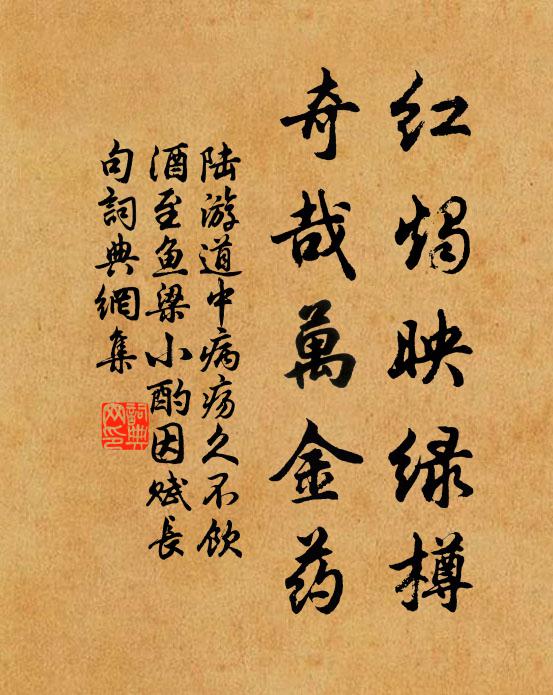 红烛映绿樽
奇哉萬金药
陆游道中病疡久不饮
酒至鱼梁小酌因赋长
句詞典網集
詞典
网印